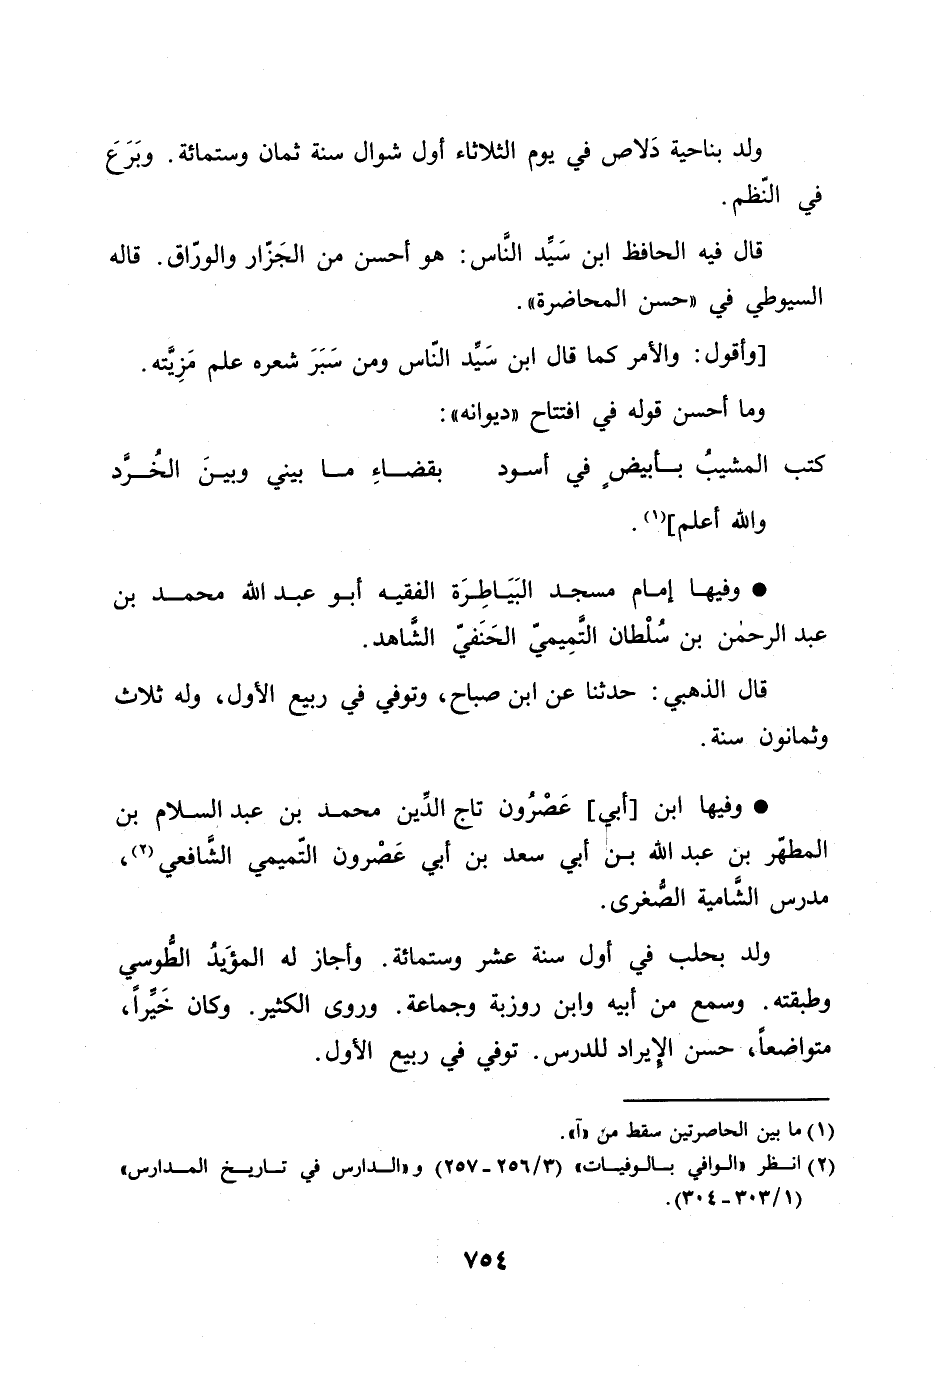 ولد بناحية دَلاص في يوم الثلاثاء أول شوال سنة ثمان وستمائة. وبَرَعَ
في النّظم.
قال فيه الحافظ ابن سَيِّد النَّاس: هو أحسن من الجَزَّار والورّاق. قاله
السيوطي في «حسن المحاضرة».
[وأقول: والأمر كما قال ابن سَيِّد النّاس ومن سَبَرَ شعره علم مَزِيَّته.
وما أحسن قوله في افتتاح «ديوانه»:
كتب المشيبُ بـأبيضٍ في أسـود بقضـاءِ مـا بيني وبينَ الخُـرَّد
والله أعلم](١).
● وفيهـا إمـام مسجـد البَيَـاطِرَة الفقيـه أبـو عبـد الله محمـد بن
عبد الرحمٰن بن سُلْطان التَّمِيميّ الحَنَفيّ الشَّاهد.
قال الذهبي: حدثنا عن ابن صباح، وتوفي في ربيع الأول، وله ثلاث
وثمانون سنة.
● وفيها ابن [أبي] عَصْرُون تاج الدِّين محمـد بن عبد السـلام بن
المطهّر بن عبد الله بـن أبي سعد بن أبي عَصْرون التّميمي الشَّافعي(٢)،
مدرس الشَّامية الصُّغرى.
ولد بحلب في أول سنة عشر وستمائة. وأجاز له المؤيَدُ الطُّوسي
وطبقته. وسمع من أبيه وابن روزبة وجماعة. وروى الكثير. وكان خَيِّراً،
متواضعاً، حسن الإيراد للدرس. توفي في ربيع الأول.
(١) ما بين الحاصرتين سقط من «آ».
(٢) انـظر «الـوافي بـالـوفيـات» (٣/ ٢٥٦ - ٢٥٧) و«الـدارس في تـاريـخ المـدارس»
(١/ ٣٠٣ - ٣٠٤).
٧٥٤